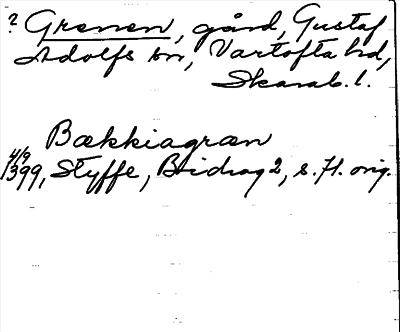 ? Grenen, gård, Gustaf
Adolfs sn, Vartofta hd,
Skarab. l.
Bækkiagræn
4/9
1399, Styffe, Bidrag 2, s. 71. orig.